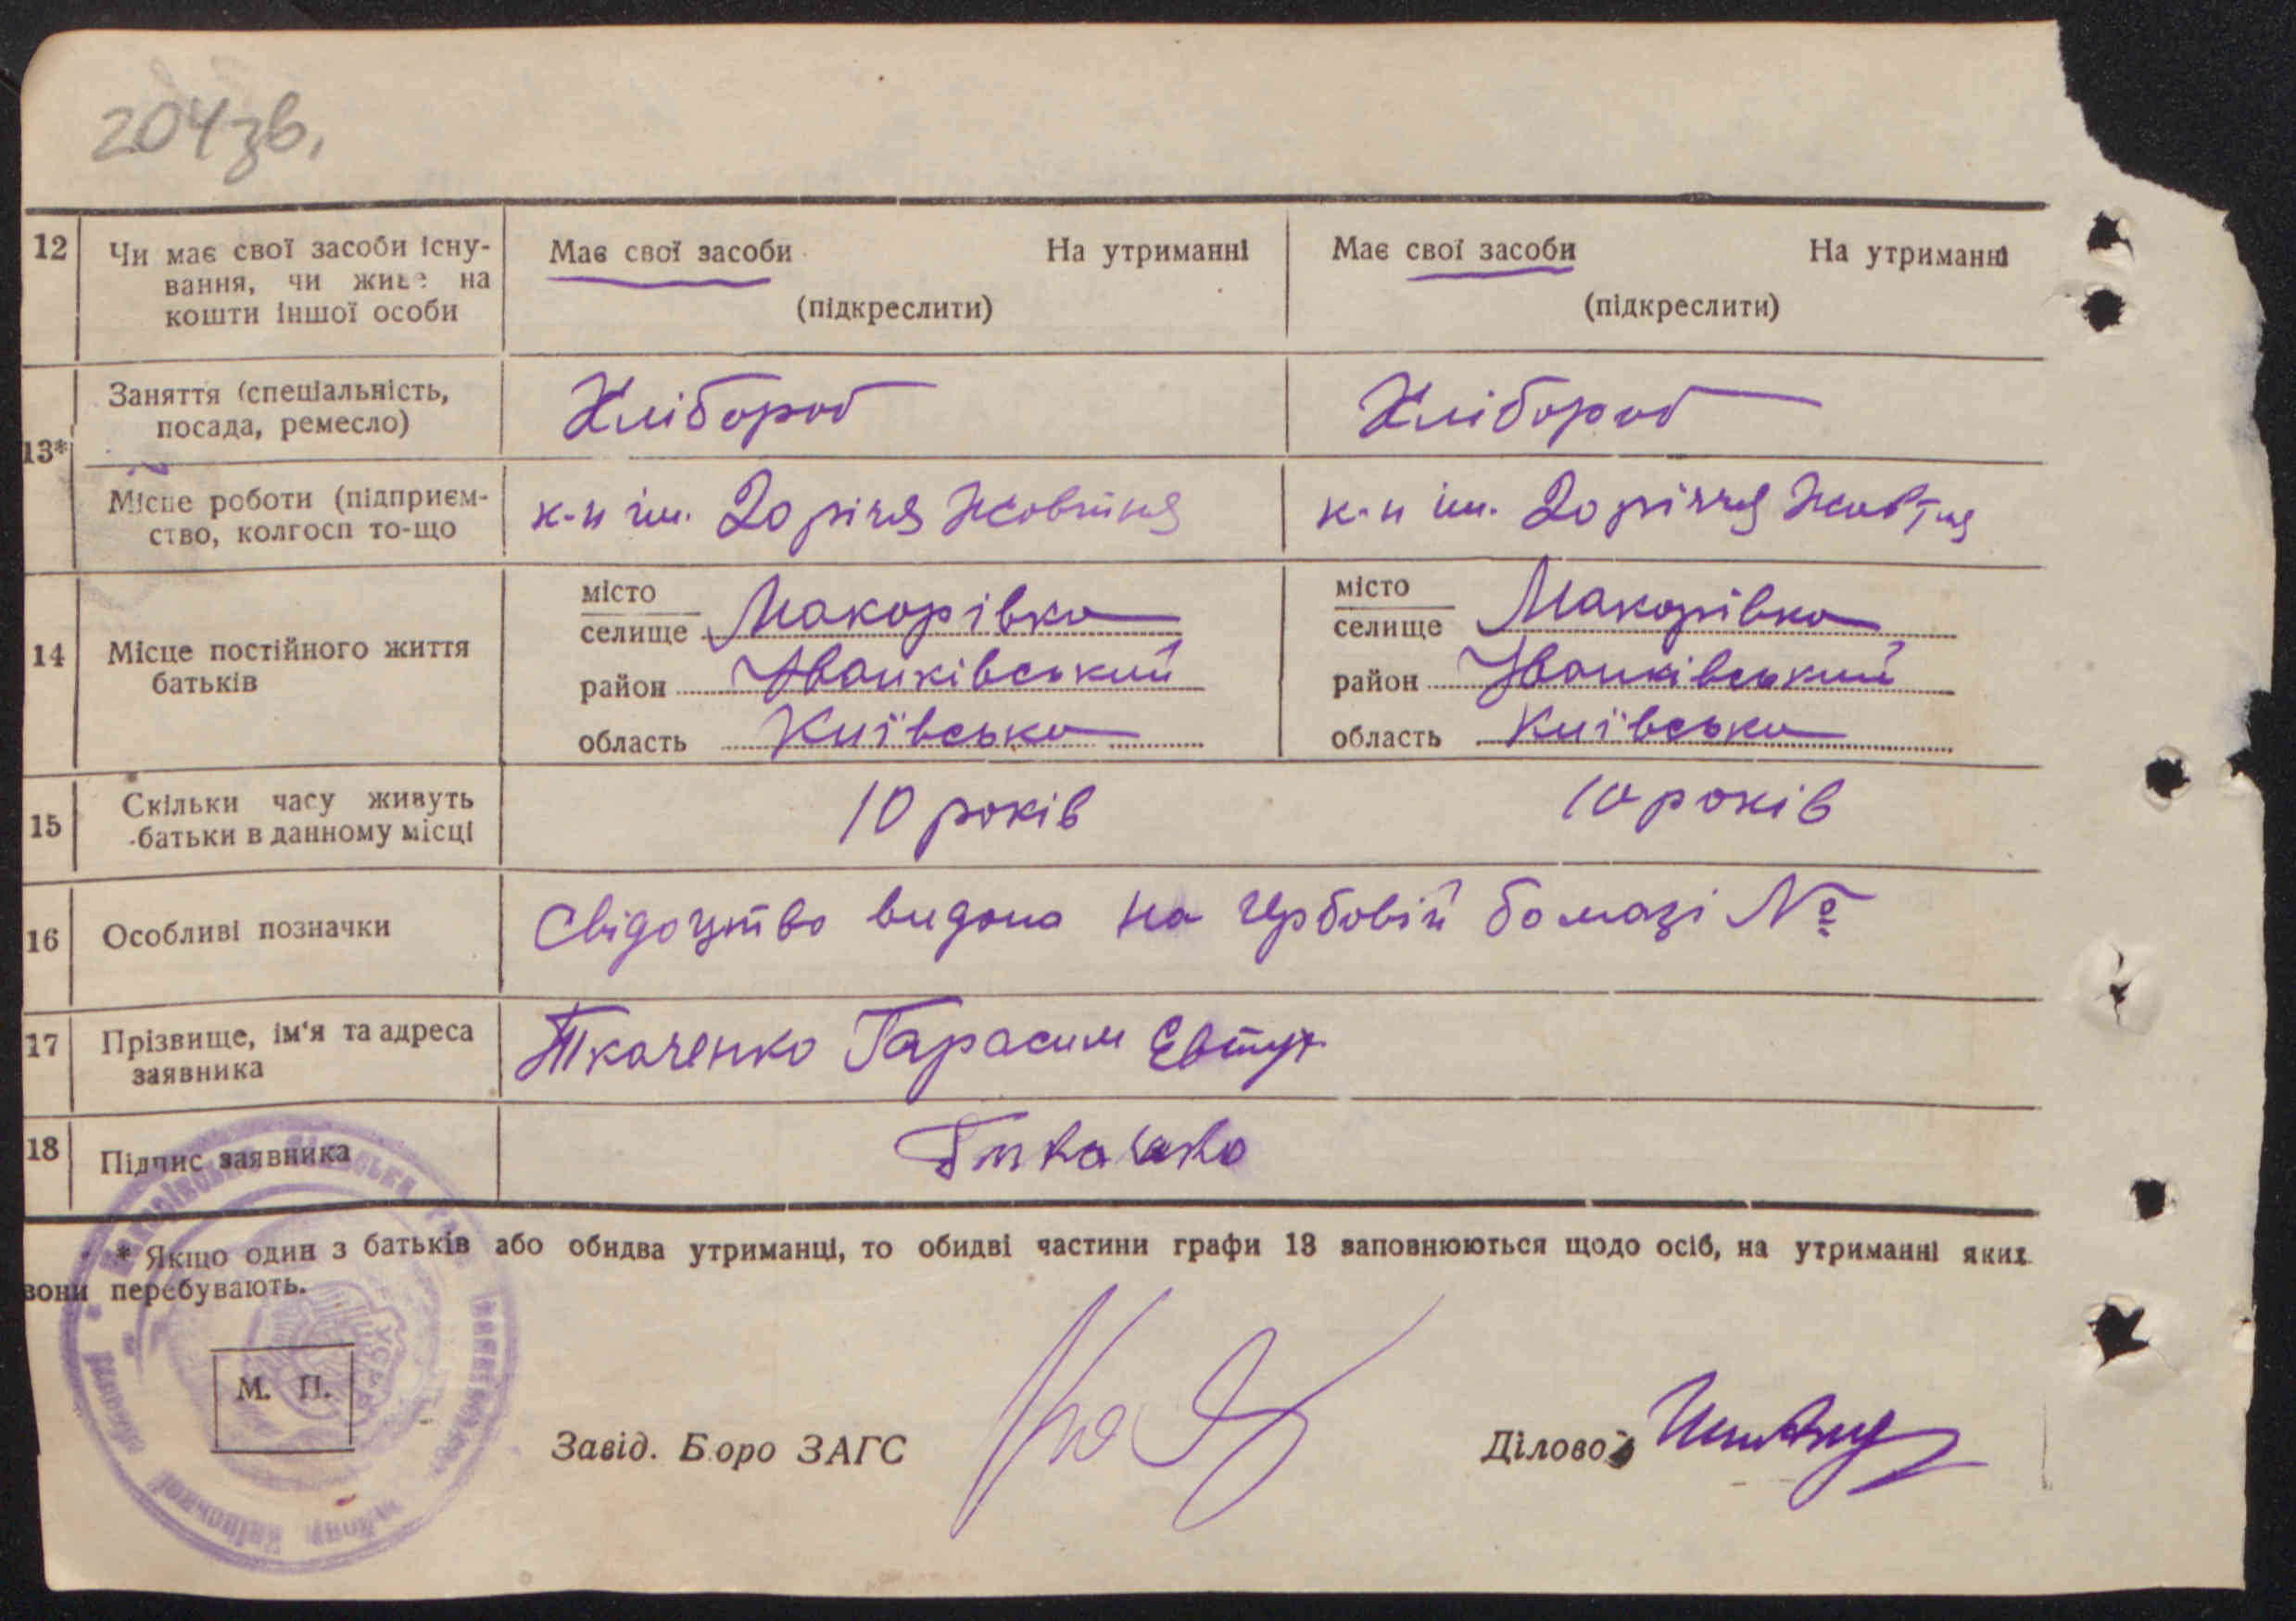 204зв.
12 Чи має свої засоби існу- Має свої засоби На утриманні Має свої засоби На утриманні
вання, чи живе на
кошти іншої особи (підкреслити) (підкреслити)
13* Заняття (спеціальність, Хлібороб Хлібороб
посада, ремесло)
Місце роботи (підприєм- к-п ім. 20 річя Жовтня к-п ім. 20 річчя Жовтня
ство, колгосп то-що
14 Місце постійного життя батьків
місто
селище Макорівка
район Іванківський
область Київська
місто
селище Макорівка
район Іванківський
область Київська
15 Скільки часу живуть 10 років 10 років
батьки в данному місці
16 Особливі позначки Свідоцтво видана на гербовій бомазі №
17 Прізвище, ім'я та адреса Ткаченко Гарасим Євтух.
заявника
18 Підпис заявника
* Якщо один з батьків або обидва утриманці, то обидві частини графи 13 заповнюються щодо осіб, на утриманні яких
вони перебувають.
М. П.
Завід. Бюро ЗАГС Ділово